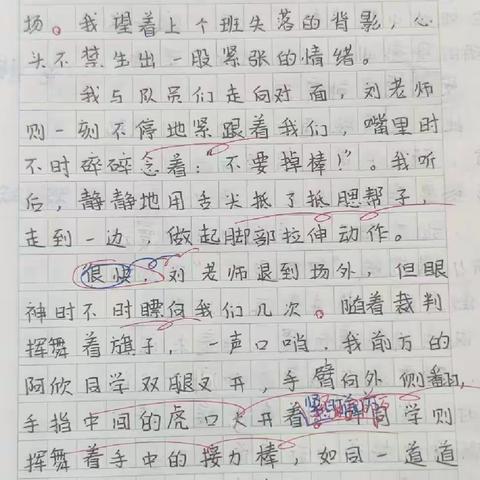 场。我望着上个班失落的背影，心
头不禁生出一股紧张的情绪。
我与队员们走向对面，刘老师
则一刻不停地紧跟着我们，嘴里时
不时碎碎念着："不要掉棒！"。我听
后，静静地用舌尖抵了抵腮帮子，
走到一边，做起脚部拉伸动作。
很快，刘老师退到场外，但眼
神时不时瞟向我们几次。随着裁判
挥舞着旗子，一声口哨，我前方的
阿欣同学双腿叉开，手臂向外侧翻，
手指中间的虎口大开着 同学则
挥舞着手中的接力棒，如同一道道